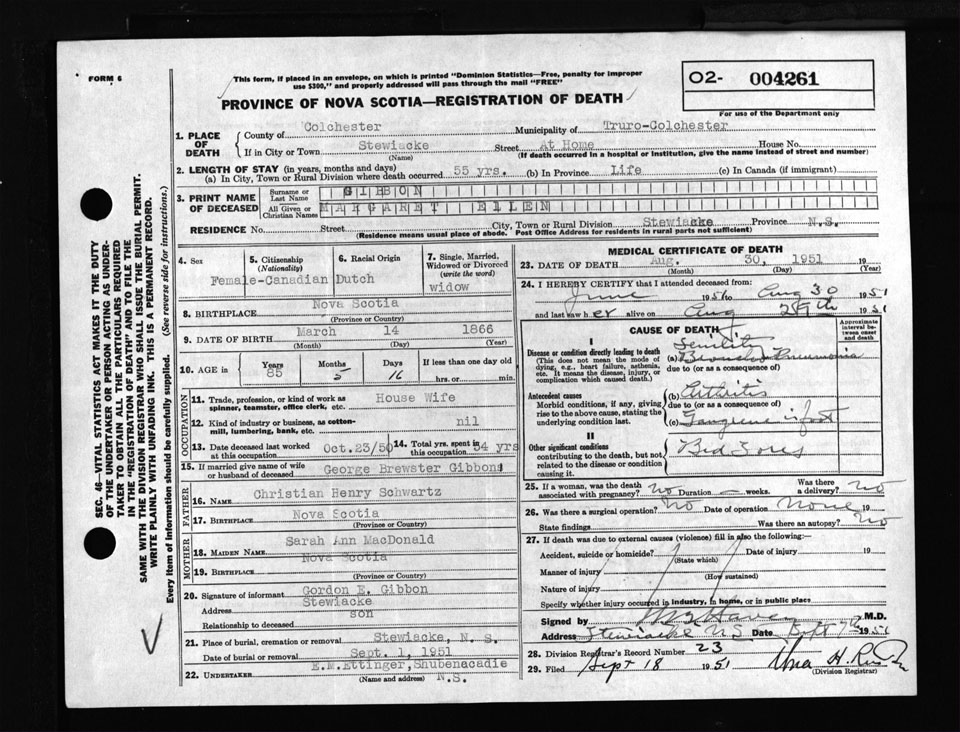 FORM 6
This form, if placed in an envelope, on which is printed "Dominion Statistics—Free, penalty for improper
use $300," and properly addressed will pass through the mail "FREE"
PROVINCE OF NOVA SCOTIA—REGISTRATION OF DEATH
O2- 004261
For use of the Department only
1. PLACE OF DEATH
County of Colchester Municipality of Truro-Colchester
If in City or Town Stewiacke Street At Home House No.
(Name) (If death occurred in a hospital or institution, give the name instead of street and number)
2. LENGTH OF STAY (in years, months and days)
(a) In City, Town or Rural Division where death occurred 55 yrs. (b) In Province Life (c) In Canada (if immigrant)
3. PRINT NAME OF DECEASED
Surname or Last Name GIBBON
All Given or Christian Names MARGARET ELLEN
RESIDENCE No. Street City, Town or Rural Division Stewiacke Province N.S.
(Residence means usual place of abode. Post Office Address for residents in rural parts not sufficient)
4. Sex 5. Citizenship (Nationality) 6. Racial Origin 7. Single, Married, Widowed or Divorced (write the word)
Female-Canadian Dutch widow
8. BIRTHPLACE Nova Scotia
(Province or Country)
9. DATE OF BIRTH March 14 1866
(Month) (Day) (Year)
10. AGE in Years Months Days If less than one day old
85 5 16 hrs. or min.
OCCUPATION
11. Trade, profession, or kind of work as spinner, teamster, office clerk, etc. House Wife
12. Kind of industry or business, as cotton-mill, lumbering, bank, etc. nil
13. Date deceased last worked at this occupation Oct.23/50 14. Total yrs. spent in this occupation 54 yrs
15. If married give name of wife or husband of deceased George Brewster Gibbon
FATHER
16. NAME Christian Henry Schwartz
17. BIRTHPLACE Nova Scotia
(Province or Country)
MOTHER
18. MAIDEN NAME Sarah Ann MacDonald
19. BIRTHPLACE Nova Scotia
(Province or Country)
20. Signature of informant Gordon E. Gibbon
Address Stewiacke
Relationship to deceased son
21. Place of burial, cremation or removal Stewiacke, N. S.
Date of burial or removal Sept. 1, 1951
22. UNDERTAKER E.M.Ettinger, Shubenacadie
(Name and address) N.S.
MEDICAL CERTIFICATE OF DEATH
23. DATE OF DEATH Aug. 30, 1951 19
(Month) (Day) (Year)
24. I HEREBY CERTIFY that I attended deceased from:
June 1951 to Aug 30 1951
and last saw her alive on Aug 29th 1951
CAUSE OF DEATH
Approximate interval between onset and death
I
Senility
Disease or condition directly leading to death (a) Broncho Pneumonia
(This does not mean the mode of dying, e.g., heart failure, asthenia, etc. It means the disease, injury, or complication which caused death.)
due to (or as a consequence of)
Antecedent causes (b) Arthritis
Morbid conditions, if any, giving rise to the above cause, stating the underlying condition last.
due to (or as a consequence of)
(c) Gangrene in foot
II
Other significant conditions
contributing to the death, but not related to the disease or condition causing it.
Bed Sores
25. If a woman, was the death associated with pregnancy? No Duration weeks. Was there a delivery? No
26. Was there a surgical operation? No Date of operation None 19
State findings Was there an autopsy? No
27. If death was due to external causes (violence) fill in also the following:—
Accident, suicide or homicide? Date of injury 19
(State which)
Manner of injury
(How sustained)
Nature of injury
Specify whether injury occurred in industry, in home, or in public place
Signed by M.D.
Address Stewiacke N.S. Date 1951
28. Division Registrar's Record Number 23
29. Filed Sept 18 1951
(Division Registrar)
SEC. 46—VITAL STATISTICS ACT MAKES IT THE DUTY
OF THE UNDERTAKER OR PERSON ACTING AS UNDER-
TAKER TO OBTAIN ALL THE PARTICULARS REQUIRED
IN THE "REGISTRATION OF DEATH" AND TO FILE THE
SAME WITH THE DIVISION REGISTRAR WHO SHALL ISSUE THE BURIAL PERMIT.
WRITE PLAINLY WITH UNFADING INK. THIS IS A PERMANENT RECORD.
Every item of Information should be carefully supplied. (See reverse side for instructions.)